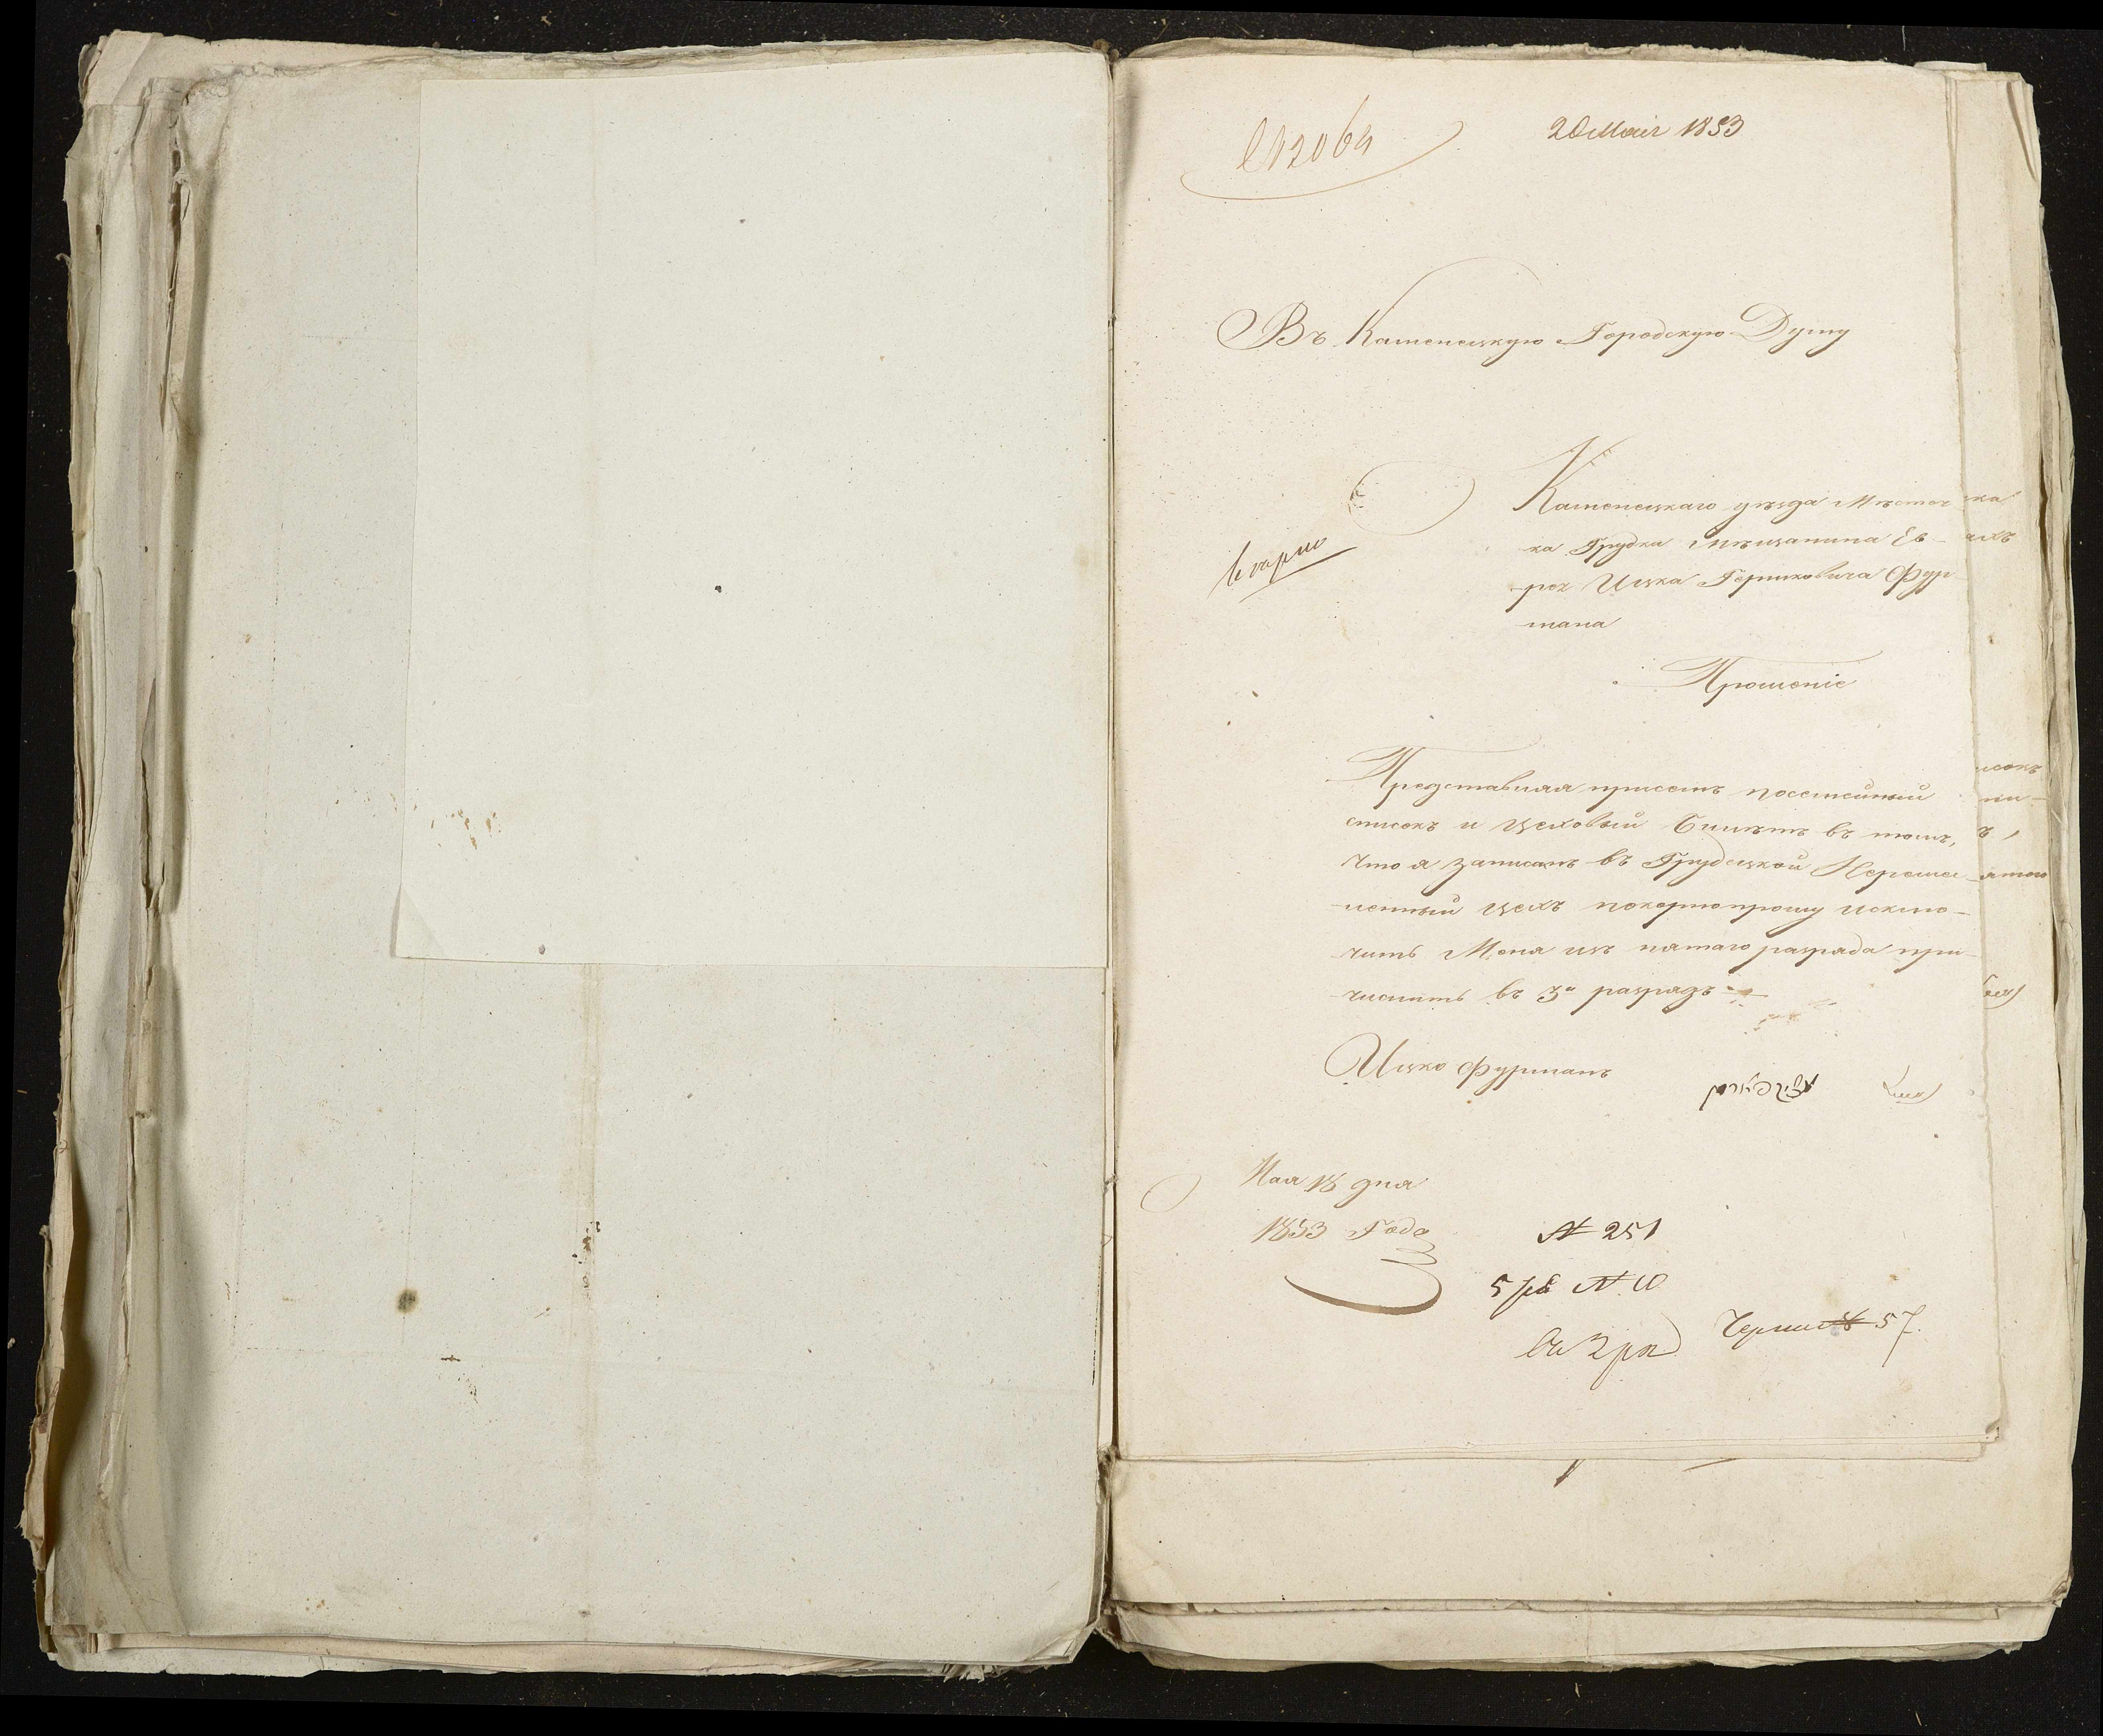 № 2064
20 Мая 1853
Въ Каменецкую Городскую Думу
Каменецкаго уѣзда Мѣстеч
ка Грудка Мѣщанина Ев-
рея Ицка Гершковича Фур
мана
Прошеніе
Представляя присемъ посемейный
списокъ и Цеховый Билѣтъ въ томъ,
что я записанъ въ Грудецкой
ценный цехъ покорно прошу исклю-
чить Меня изъ пятаго разряда при-
числить въ 3й разрядъ
Ицко Фурманъ
Мая 18 дня
1853 Года
№ 251
5 ра № 10
въ 3 ра
57.
ка
ихъ
исокъ
ъ,
ятого